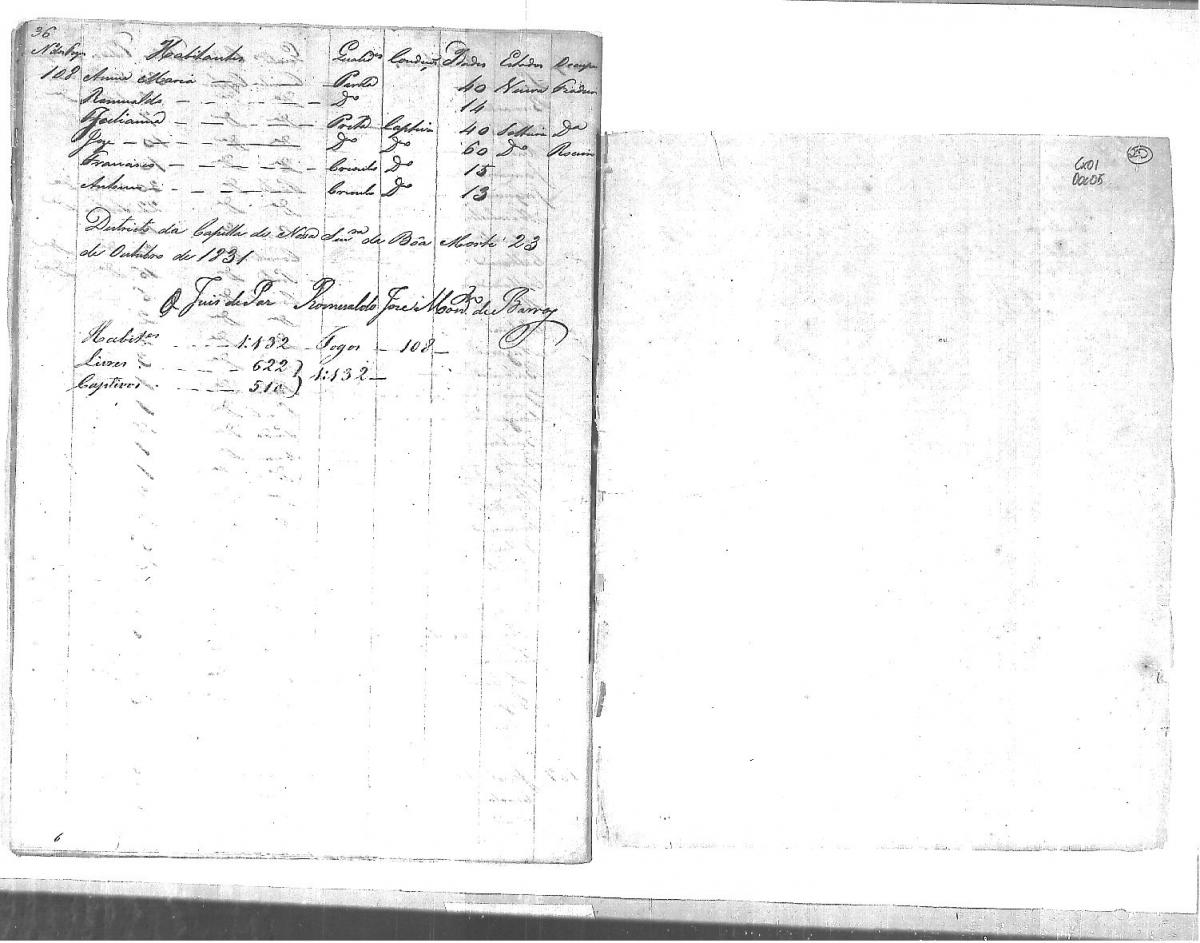 36
Habitantes Qualid.es Condiç. Idades Estados Occup.
108 Anna Maria Parda 40 Viuva Fiadeira
Romualdo D.o 14
Preta Captiva 40 Solteira D.a
Joze D.o D.o 60 D.o Roceiro
Francisco Crioulo D.o 15
Antonio Crioulo D.o 13
Districto da Capella de Nossa Snr.a da Bôa Morte 23
de Outubro de 1831
O Juis de Paz Romualdo Joze Mont.ro de Barros
Habit.es 1:132 Fogos 108
Livres 622
Captivos 510 } 1:132
6
CX01
DOC05